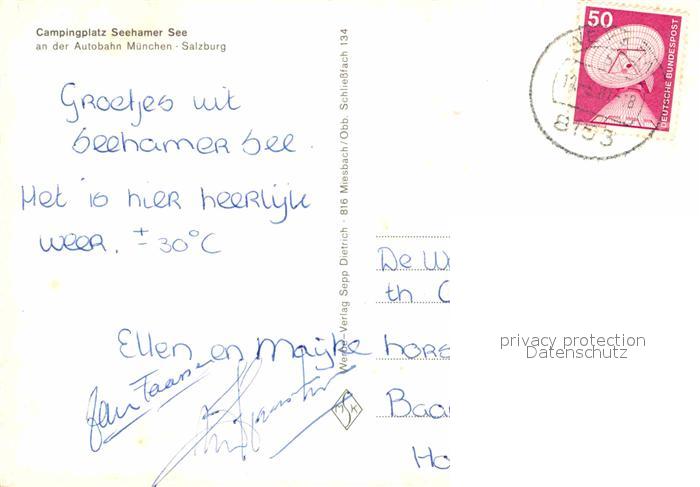 Campingplatz Seehamer See
an der Autobahn München · Salzburg
Groetjes uit
Seehamer See.
Het is hier heerlijk
weer. ± 30°C
Ellen en Maijke
Jan Faasse
Werbe-Verlag Sepp Dietrich · 816 Miesbach/Obb. Schließfach 134
50
DEUTSCHE BUNDESPOST
8153
De We
th C
hore
Baar
Ho
privacy protection
Datenschutz